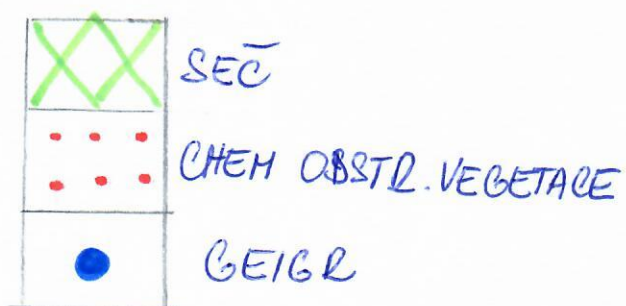 SEČ
CHEM OBSTR. VEGETACE
GEIGR